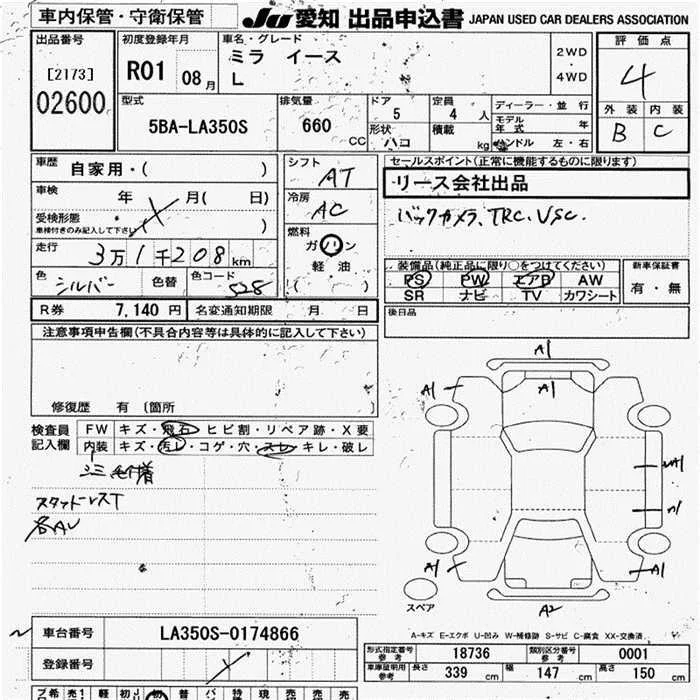 車内保管・守衛保管
JU 愛知 出品申込書 JAPAN USED CAR DEALERS ASSOCIATION
出品番号
[2173]
02600
初度登録年月
R01 08月
車名・グレード
ミラ イース
L
2WD
・
4WD
評価点
4
外装 内装
B C
型式
5BA-LA350S
排気量
660 CC
ドア
5
形状
ハコ
定員
4 人
積載
kg
ディーラー・並行
モデル年式 年
ハンドル 左・右
車歴 自家用・( )
車検 年 月( 日)
受検形態
車検付きのみ記入して下さい
走行 3万1千208km
色 シルバー 色替 色コード S28
シフト
AT
冷房
AC
燃料
ガソリン
軽油
( )
セールスポイント(正常に機能するものに限ります)
リース会社出品
バックカメラ、TRC、VSC.
装備品(純正品に限り○をつけてください)
PS PW エアB AW
SR ナビ TV カワシート
新車保証書
有・無
R券 7,140円 名変通知期限 月 日
後日品
注意事項申告欄(不具合内容等は具体的に記入して下さい)
修復歴 有〔箇所 〕
検査員記入欄
FW キズ・飛石・ヒビ割・リペア跡・X要
内装 キズ・汚レ・コゲ・穴・スレ・キレ・破レ
スタッドレスT
各AU
A1
A1
A1
A1
A1
A1
A2
スペア
A-キズ E-エクボ U-凹み W-補修跡 S-サビ C-腐食 XX-交換済
車台番号 LA350S-0174866
登録番号
形式指定番号 参考 18736 類別区分番号 参考 0001
車庫証明用 参考 長さ 339 cm 幅 147 cm 高さ 150 cm